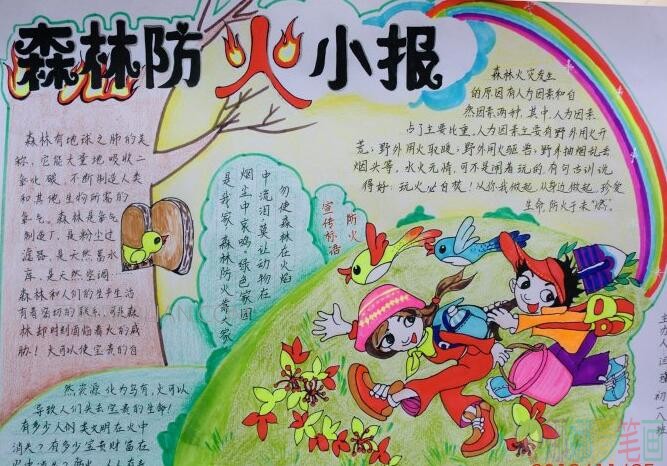 森林防火小报
森林有地球之肺的美
称，它能大量地吸收二
氧化碳，不断制造人类
和其他生物所需的
氧气。森林是氧气
制造厂，是粉尘过
滤器，是天然蓄水
库，是天然空调…
森林和人们的生产生活
有着密切的联系，可是森
林却时刻面临着火的威
胁！火可以使宝贵的自
然资源化为乌有，火可以
导致人们失去宝贵的生命！
有多少人们类文明在火中
消失？有多少宝贵财富在
防火
宣传标语
勿使森林在火焰
中流泪莫让动物在
烟尘中哀鸣，绿色家园
是我家 森林防火靠大家
森林火灾发生
的原因有人为因素和自
然因素两种，其中，人为因素
占了主要比重，人为因素主要有野外用火开
荒；野外用火取暖；野外用火驱兽；野外抽烟乱丢
烟头等。水火无情，可不是闹着玩的，有句古训说
得好：玩火必自焚！从你我做起，从身边做起，珍爱
生命，防火于未“燃”。